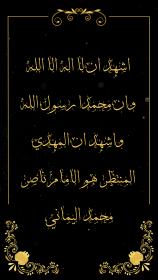 اشهد ان لا اله الا الله
وان محمدا رسول الله
واشهد ان المهدي
المنتظر هو الامام ناصر
محمد اليماني